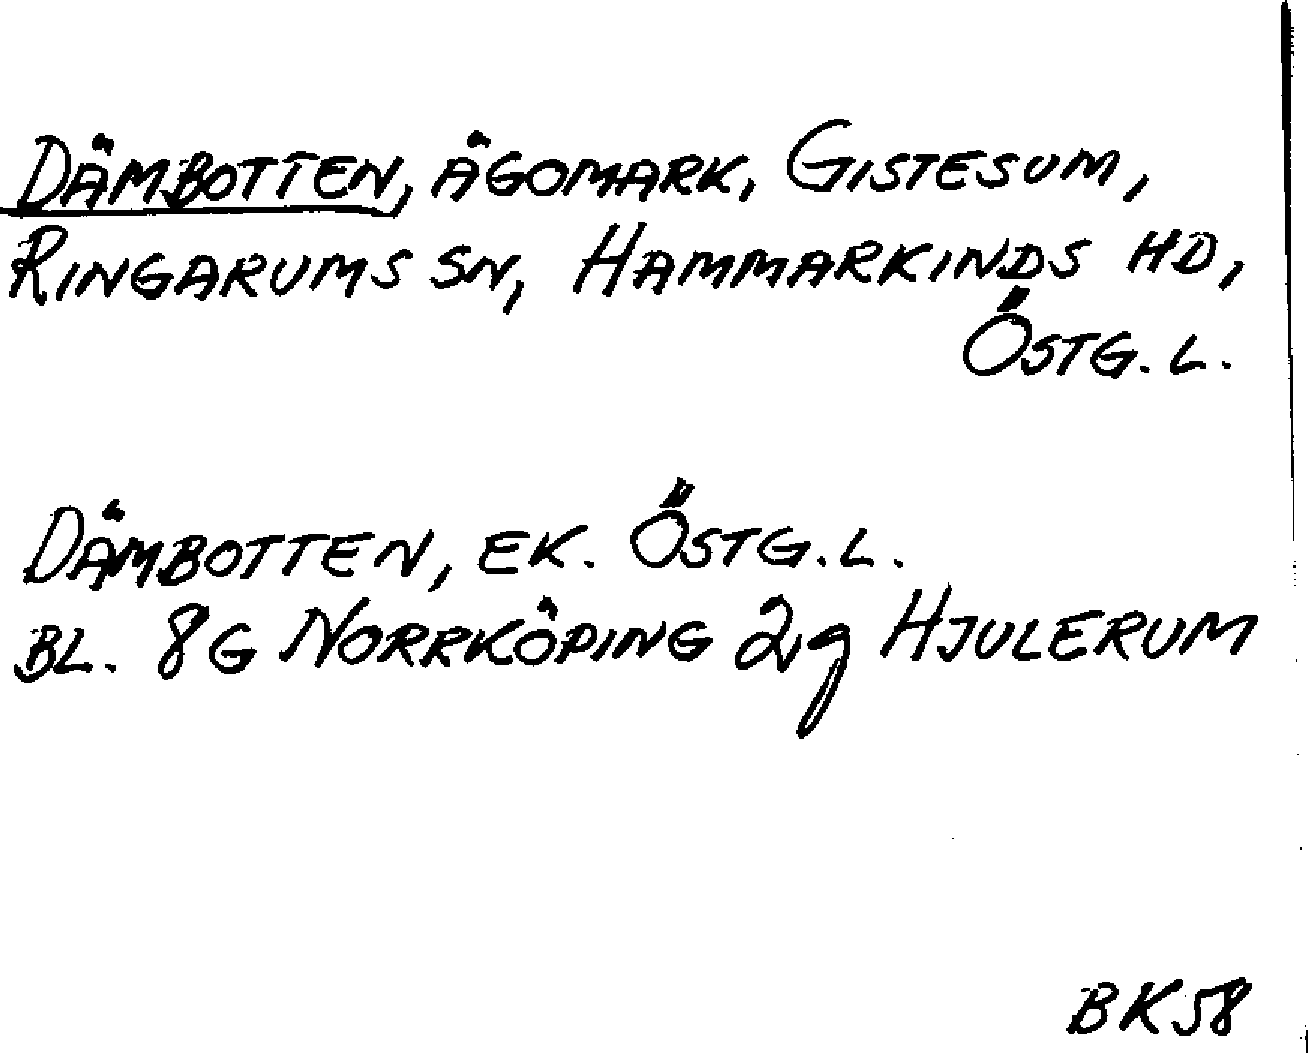 DÄMBOTTEN, ÄGOMARK, GISTESUM,
RINGARUMS SN, HAMMARKINDS HD,
ÖSTG. L.
DÄMBOTTEN, EK. ÖSTG. L.
BL. 8G NORRKÖPING 2g HJULERUM
BK58